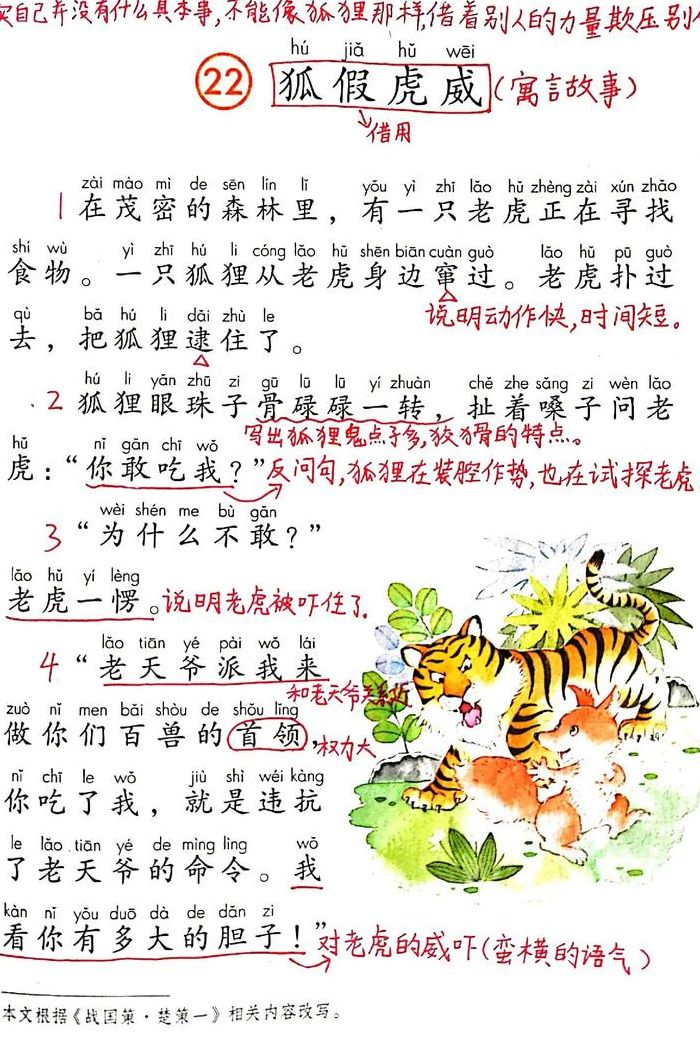 实自己并没有什么真本事,不能像狐狸那样,借着别人的力量欺压别
hú jiǎ hǔ wēi
22 狐假虎威(寓言故事)
借用
zài mào mì de sēn lín lǐ yǒu yì zhī lǎo hǔ zhèng zài xún zhǎo
1 在茂密的森林里，有一只老虎正在寻找
shí wù yì zhī hú li cóng lǎo hǔ shēn biān cuàn guò lǎo hǔ pū guò
食物。一只狐狸从老虎身边窜过。老虎扑过
说明动作快,时间短。
qù bǎ hú li dǎi zhù le
去，把狐狸逮住了。
hú li yǎn zhū zi gū lū lū yí zhuàn chě zhe sǎng zi wèn lǎo
2 狐狸眼珠子骨碌碌一转，扯着嗓子问老
写出狐狸鬼点子多,狡猾的特点。
hǔ nǐ gǎn chī wǒ
虎：“你敢吃我？”反问句,狐狸在装腔作势,也在试探老虎
wèi shén me bù gǎn
3 “为什么不敢？”
lǎo hǔ yí lèng
老虎一愣。说明老虎被吓住了
lǎo tiān yé pài wǒ lái
4 “老天爷派我来
和老天爷关系近
zuò nǐ men bǎi shòu de shǒu lǐng
做你们百兽的首领，权力大
nǐ chī le wǒ jiù shì wéi kàng
你吃了我，就是违抗
le lǎo tiān yé de mìng lìng wǒ
了老天爷的命令。我
kàn nǐ yǒu duō dà de dǎn zi
看你有多大的胆子！”对老虎的威吓(蛮横的语气)
本文根据《战国策·楚策一》相关内容改写。